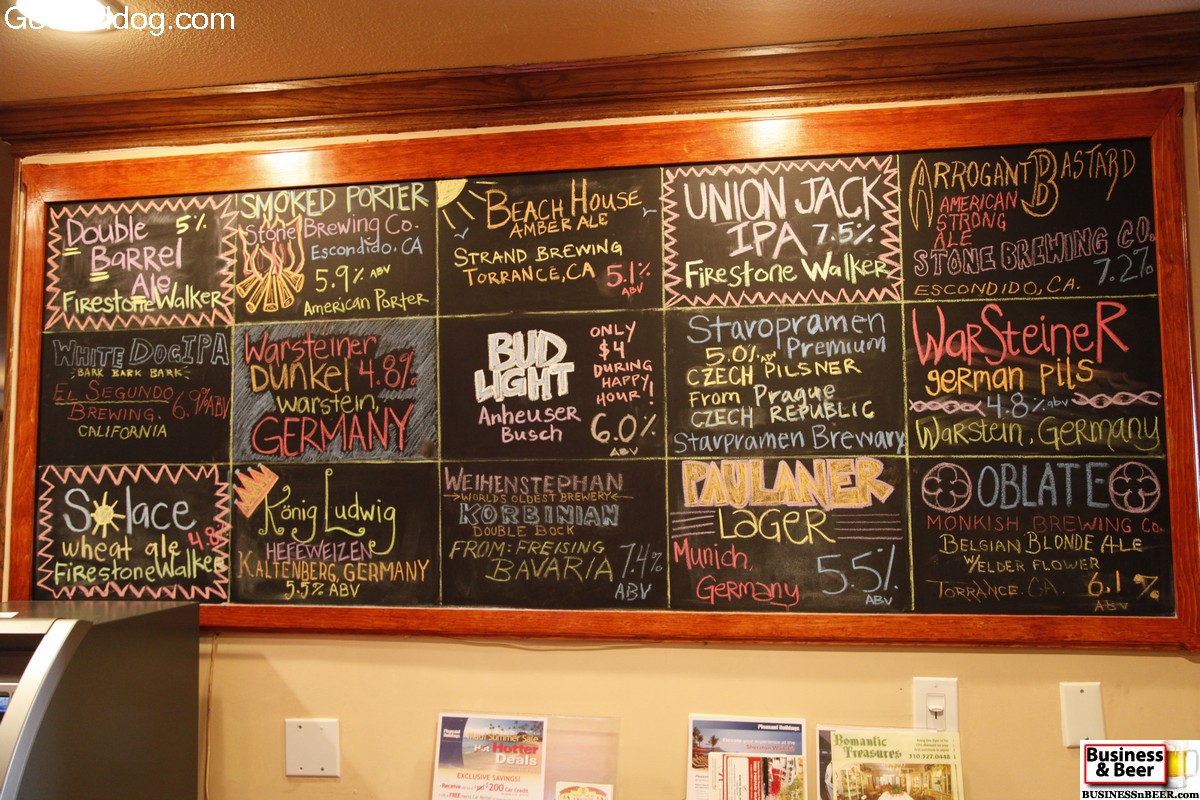 Double 5%
Barrel
Ale
Firestone Walker
SMOKED PORTER
Stone Brewing Co.
Escondido, CA
5.9% ABV
American Porter
BEACH HOUSE
AMBER ALE
STRAND BREWING
TORRANCE, CA 5.1%
ABV
UNION JACK
IPA 7.5%
Firestone Walker
ARROGANT BASTARD
AMERICAN
STRONG
ALE
STONE BREWING CO.
7.2%
ESCONDIDO, CA.
WHITE DOG IPA
BARK BARK BARK
EL SEGUNDO
BREWING. 6.9% ABV
CALIFORNIA
Warsteiner
DUNKEL 4.8%
warstein,
GERMANY
BUD
LIGHT
Anheuser
Busch
ONLY
$4
DURING
HAPPY
HOUR!
6.0%
ABV
Staropramen
Premium
5.0% ABV
CZECH PILSNER
From Prague
CZECH REPUBLIC
Starpramen Brewary
WarSteineR
german pils
4.8% ABV
Warstein, Germany
Solace
wheat ale 4.8%
Firestone Walker
König Ludwig
HEFEWEIZEN
KALTENBERG, GERMANY
5.5% ABV
WEIHENSTEPHAN
WORLDS OLDEST BREWERY
KORBINIAN
DOUBLE BOCK
FROM: FREISING
BAVARIA 7.4%
ABV
PAULANER
LAGER
Munich,
Germany
5.5%
ABV
OBLATE
MONKISH BREWING CO.
BELGIAN BLONDE ALE
W/ELDER FLOWER
TORRANCE. CA. 6.1%
ABV
Pleasant Holidays
Summer Sale
Hot Hotter
Deals
EXCLUSIVE SAVINGS!
$200 Car Credit
Pleasant Holidays
Romantic
Treasures
310.327.0448
Business
& Beer
BUSINESSnBEER.com